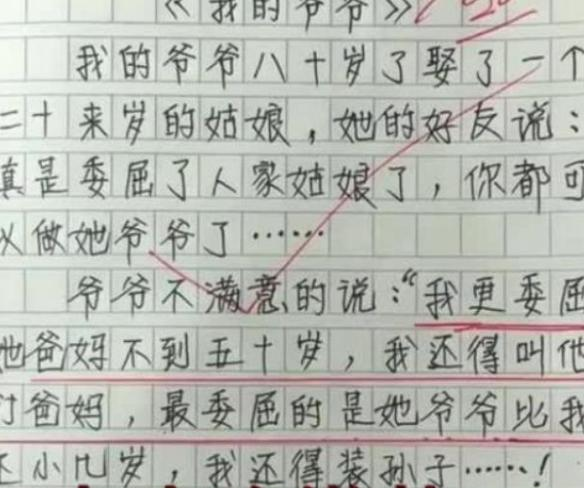 《我的爷爷》
我的爷爷八十岁了娶了一个
二十来岁的姑娘，她的好友说：
真是委屈了人家姑娘了，你都可
以做她爷爷了……
爷爷不满意的说：“我更委屈
她爸妈不到五十岁，我还得叫他
们爸妈，最委屈的是她爷爷比我
还小几岁，我还得装孙子……！